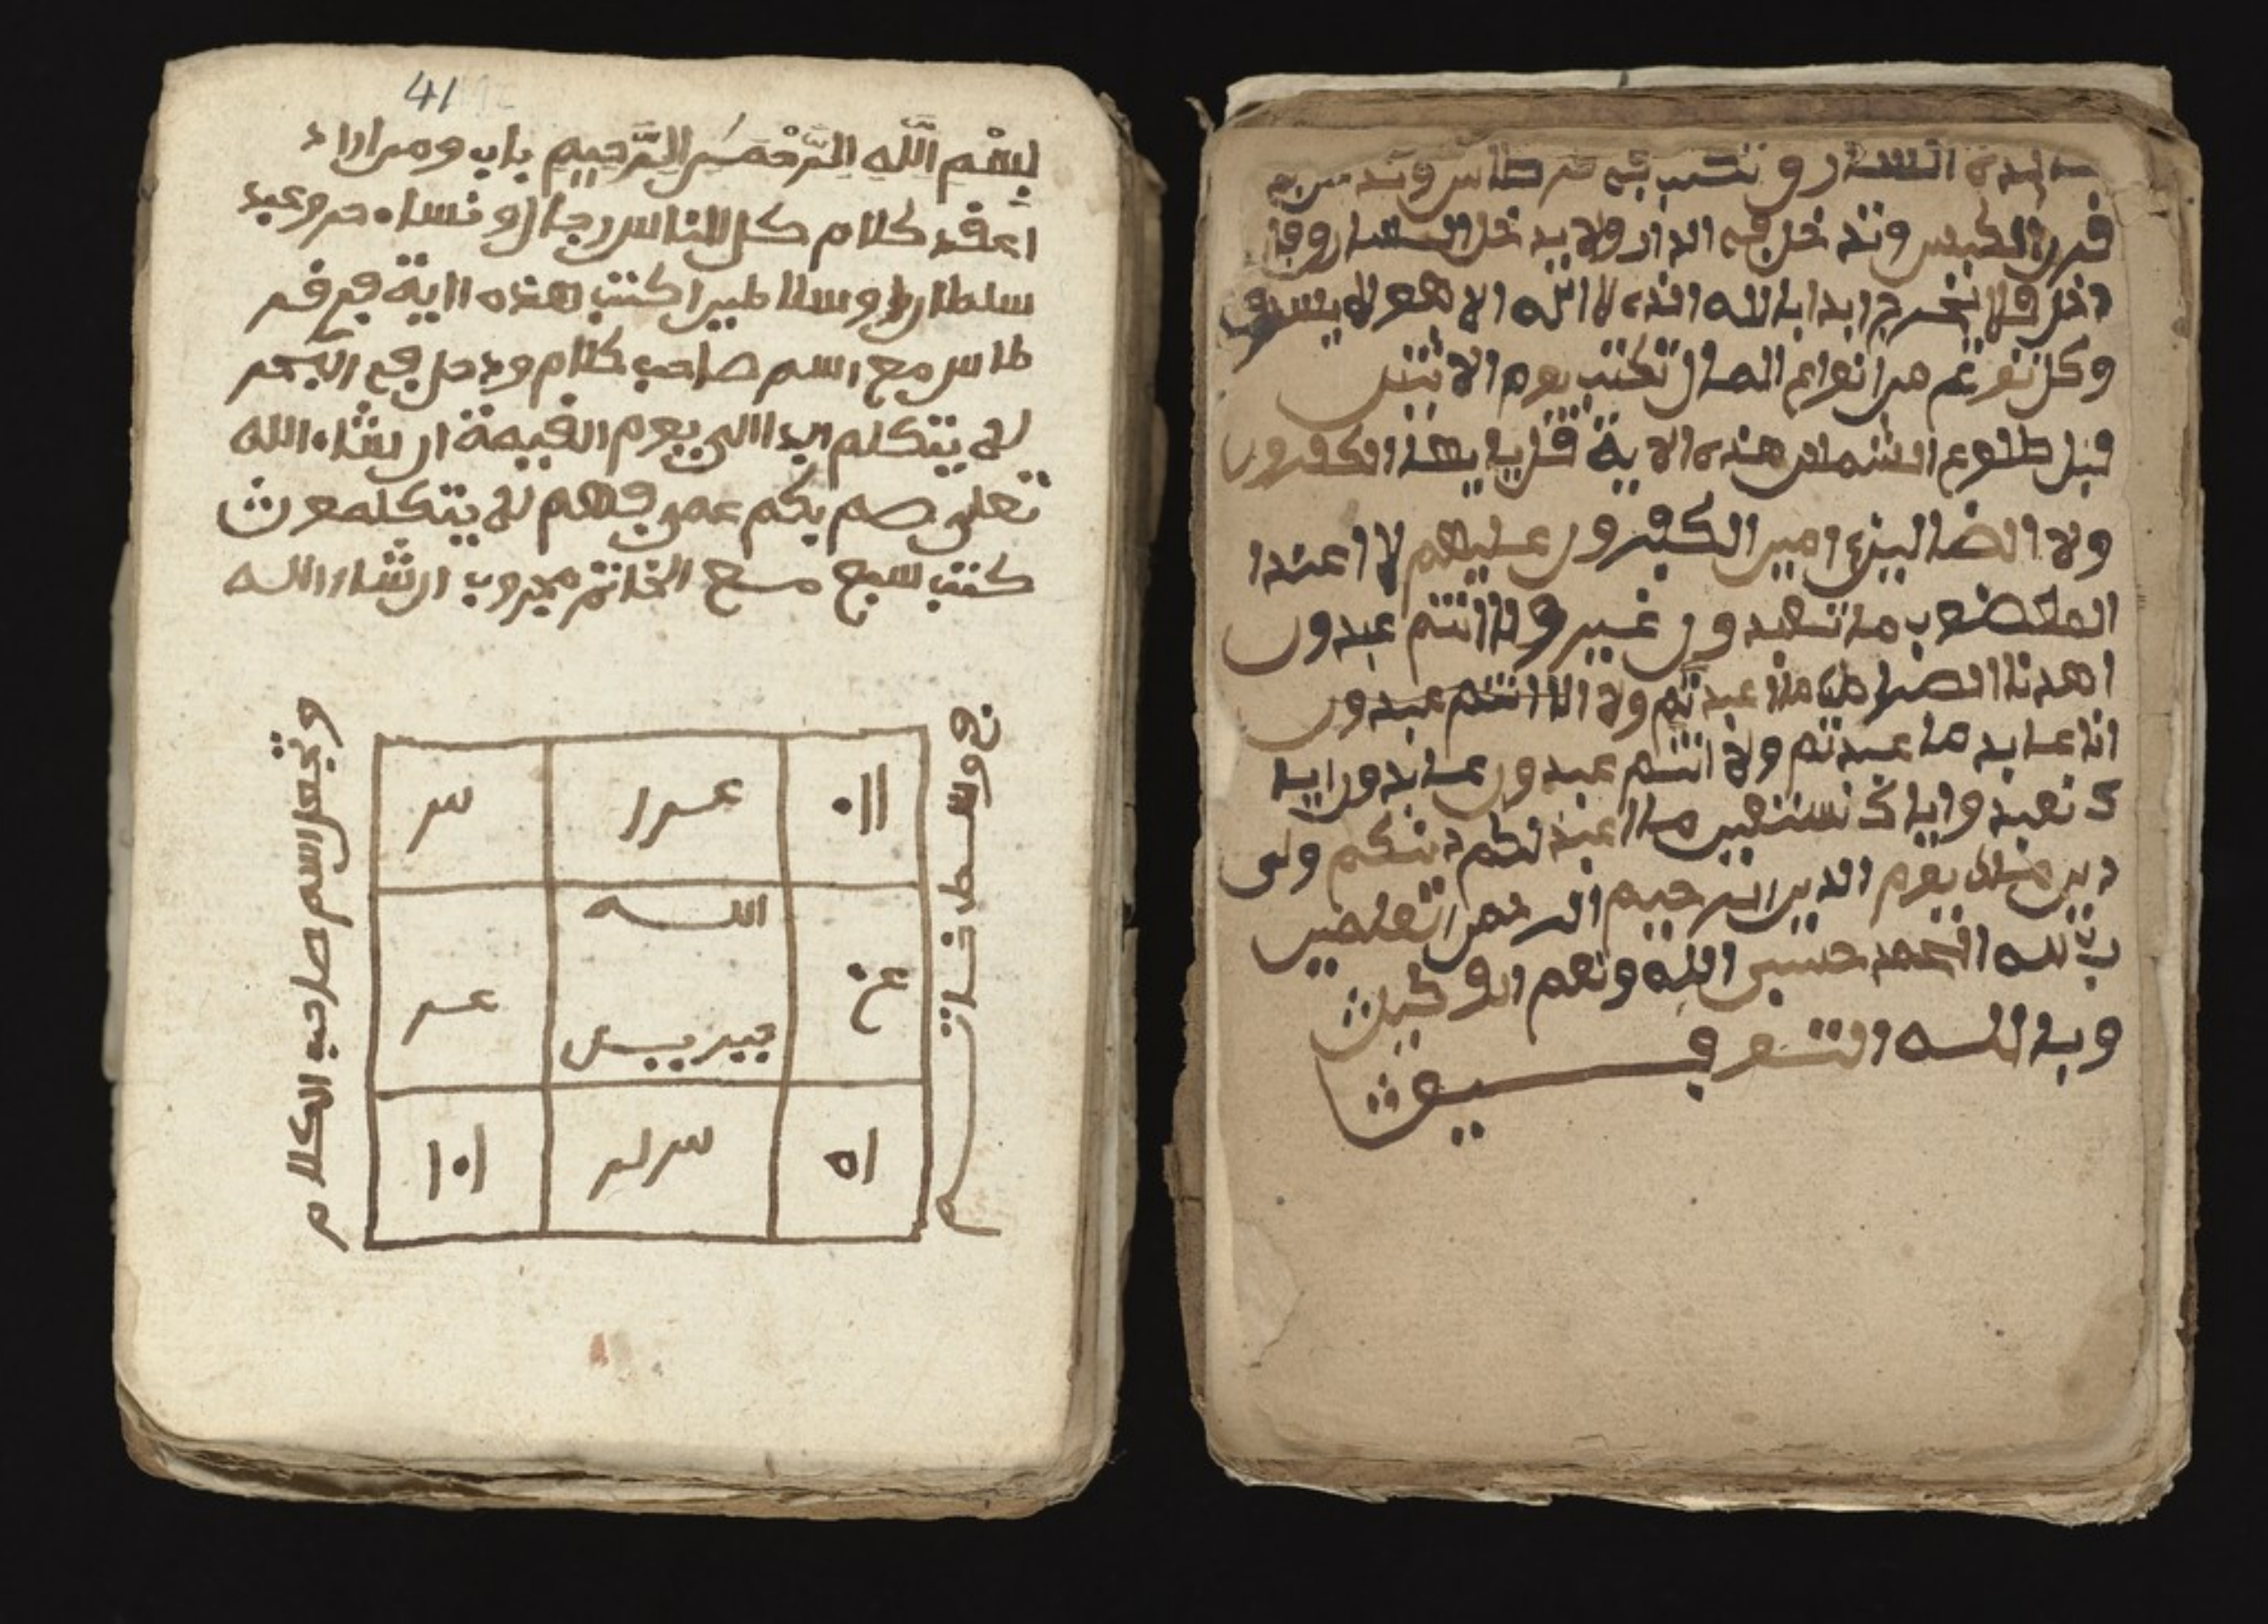 41
بِسْمِ اللَّهِ الرَّحْمَنِ الرَّحِيمِ باب ومن اراد
اعقد كلام كل الناس رجال ونساء حر وعبد
سلطان وسلاطين اكتب هذه الاية في قر
طاس مع اسم صاحب كلام ودخل في البحر
لم يتكلم ابدا الى يوم القيمة ان شاء الله
تعلى صم بكم عمي فهم لا يتكلمون
كتب سبع مع الخاتم مجروب ان شاء الله
وتجعل اسم صاحب الكلام
في وسط خاتم
س
الله
جبريل
عر
السار و تكتب في قرطاس
قرن الكبش وتدخل في الدار ولا يدخل السار وان
دخل فلا يخرج ابدا بالله الذي لا اله الا هو لا يسرق
وكل نوع من انواع المال تكتب يوم الاثنين
قبل طلوع الشمس هذه الاية قل يا يها الكفرون
ولا الضالين امين الكفرون عليهم لا اعبد ا
المغضوب ما تعبدون غير ولا انتم عبدون
اهدنا الصراط ما اعبد تم ولا الا انتم عبدون
انا عابد ما عبدتم ولا انتم عبدون عابدون ايا
ك نعبد واياك نستعين ما اعبد لكم دينكم ولى
دين ملك يوم الدين الرحيم الرحمن العلمين
رب لله الحمد حسبي الله ونعم الوكيل
وبالله التوفيق